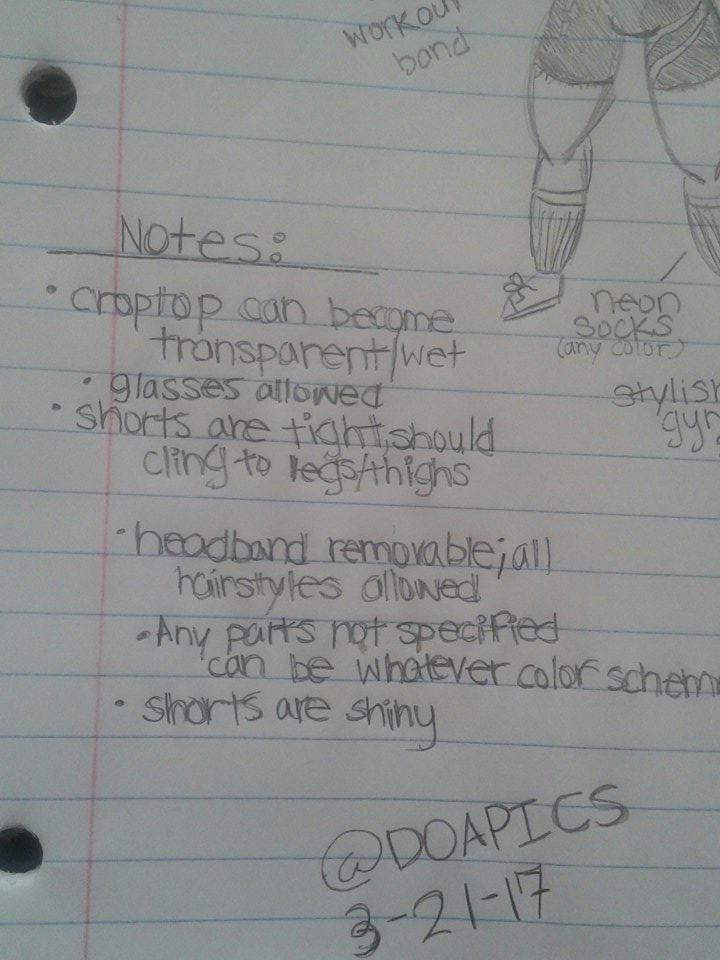 workout
band
Notes:
• croptop can become
transparent/wet
• glasses allowed
• shorts are tight, should
cling to legs/thighs
• headband removable; all
hairstyles allowed
• Any parts not specified
can be whatever color schem
• shorts are shiny
neon
socks
(any color)
stylish
gym
@DOAPICS
3-21-17